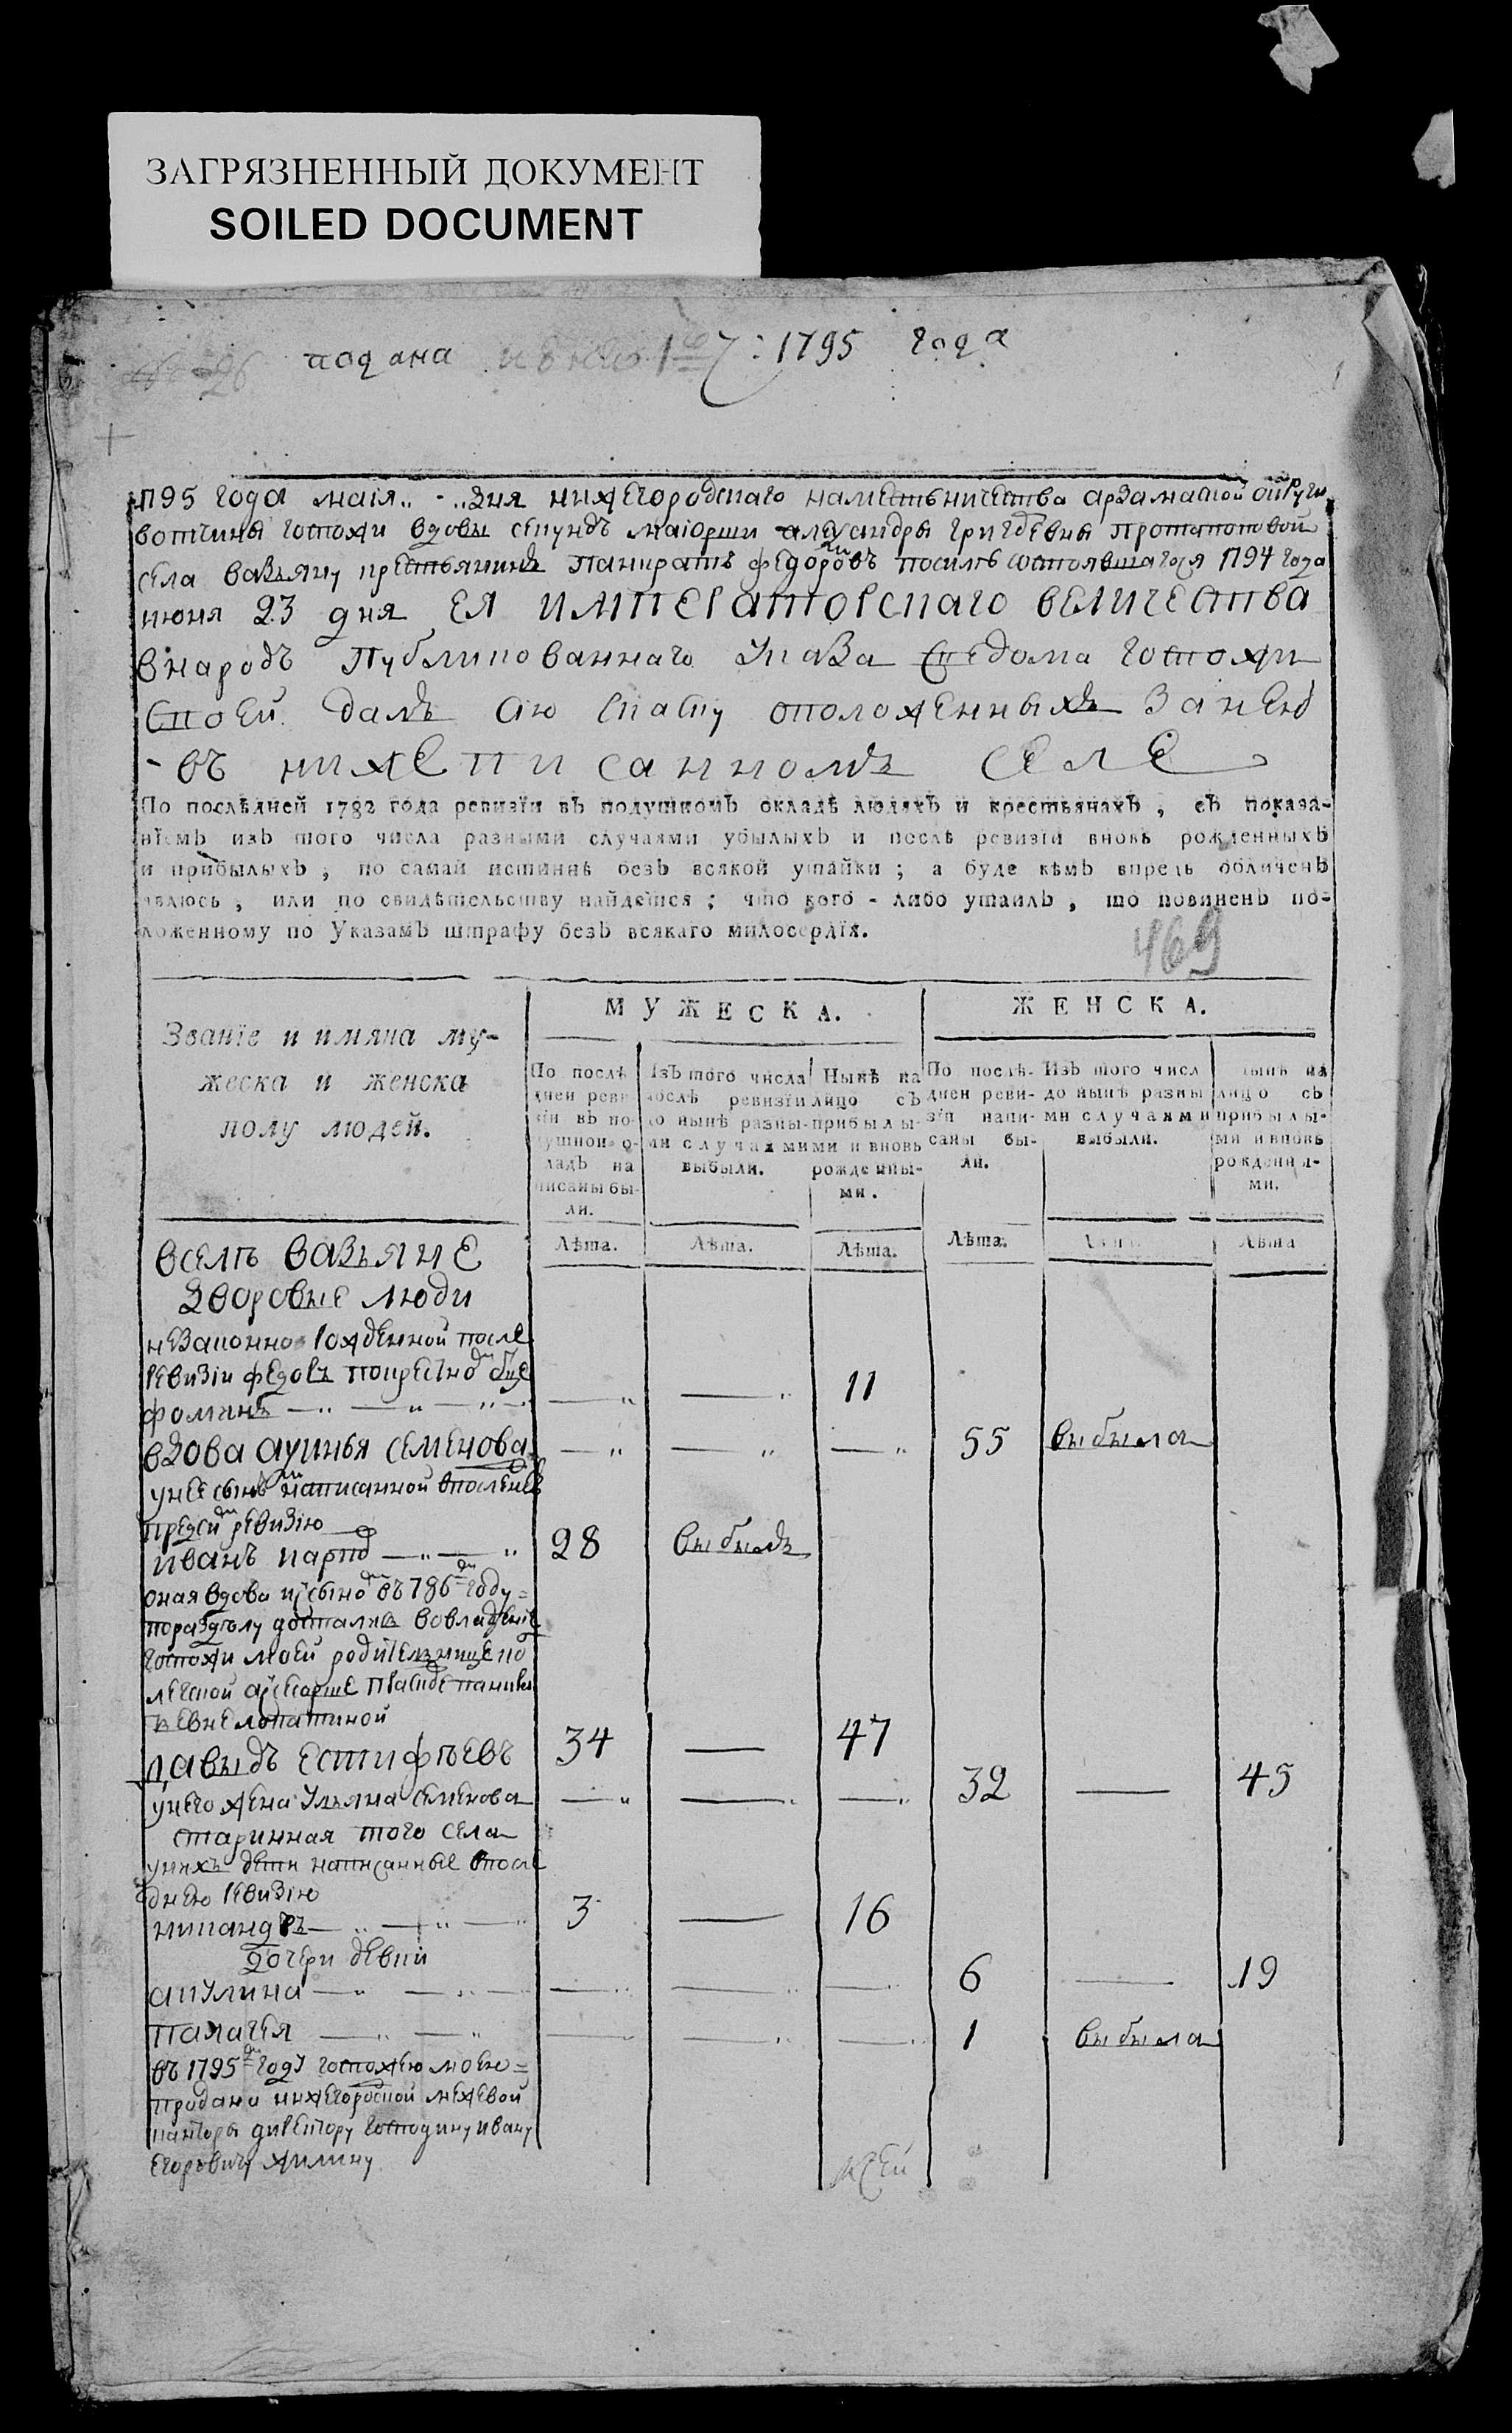 ЗАГРЯЗНЕННЫЙ ДОКУМЕНТ
SOILED DOCUMENT
подана 1795 года
1795 года маія 〃 - 〃 дня нижегородскаго наместьничества арзамаской округи
вотчины госпожи вдовы секундъ маіорши александры григорьевны протопоповой
села вазьяну крестьянинъ панкратъ федоровъ посилѣ состоявшагося 1794 года
июня 23 дня ЕЯ ИМПЕРАТОРСКАГО ВЕЛИЧЕСТВА
внародъ публикованнаго указа сведома госпожи
своей далъ сію скаску оположенныхъ занею
- въ нижеписанномъ селе
По послѣдней 1782 года ревизїи въ подушномъ окладѣ людяхъ и крестьянахъ, съ показа-
нїемъ изъ того числа разными случаями убылыхъ и послѣ ревизїи вновь рожденныхъ
и прибылыхъ, по самай истиннѣ безъ всякой утайки; а буде кѣмъ впредь обличенъ
явлюсь, или по свидѣтельству найдется; что кого - либо утаилъ, то повиненъ по-
ложенному по Указамъ штрафу безъ всякаго милосердїя.
469
Званїе и имяна му-
жеска и женска
полу людей.
МУЖЕСКА.
ЖЕНСКА.
По послѣ-
дней реви-
зїи въ по-
душной о-
ладъ на
писаны бы-
ли.
Изъ того числа
послѣ ревизїи
до нынѣ разны-
ми случаями
выбыли.
Нынѣ на
лицо съ
прибылы-
ми и вновь
рожденны-
ми.
По послѣ-
дней реви-
зїи напи-
саны бы-
ли.
Изъ того числ
до нынѣ разны
ми случаями
выбыли.
нынѣ на
лицо съ
прибылы-
ми и вновь
рожденны-
ми.
Лѣта. Лѣта. Лѣта. Лѣта. Лѣта. Лѣта
всеть вазьяне
дворовые люди
незаконно рожденной после
ревизіи федоръ покрестному отце
фоминъ — 〃 — 〃 — 〃 — 〃 — — 〃 — 〃 11
вдова аѯинья семенова — 〃 — 〃 — 〃 55 выбыла
унее сынъ написанной впоследнею
предъ сей ревизію
иванъ карпов — 〃 — 〃 28 выбылъ
оная вдова исыномъ въ 786 году =
поразделу достались вовладение
госпожи моей родительнице ко
лежской асесорше прасковье
лопатиной
давыдъ естифѣевъ 34 — 47
унего жена ульяна семенова — 〃 — 〃 — 〃 32 — 45
старинная того села
унихъ дети написанные впосле
днею ревизію
никандръ — 〃 — 〃 — 〃 3 — 16
дочери девки
акулина — 〃 — 〃 — — 〃 — 〃 — 〃 6 — 19
палагея — 〃 — 〃 — — 〃 — 〃 1 выбыла
въ 1795 году госпожею моею =
продана нижегородской межевой
канторы директору господину ивану
егоровичу жилину